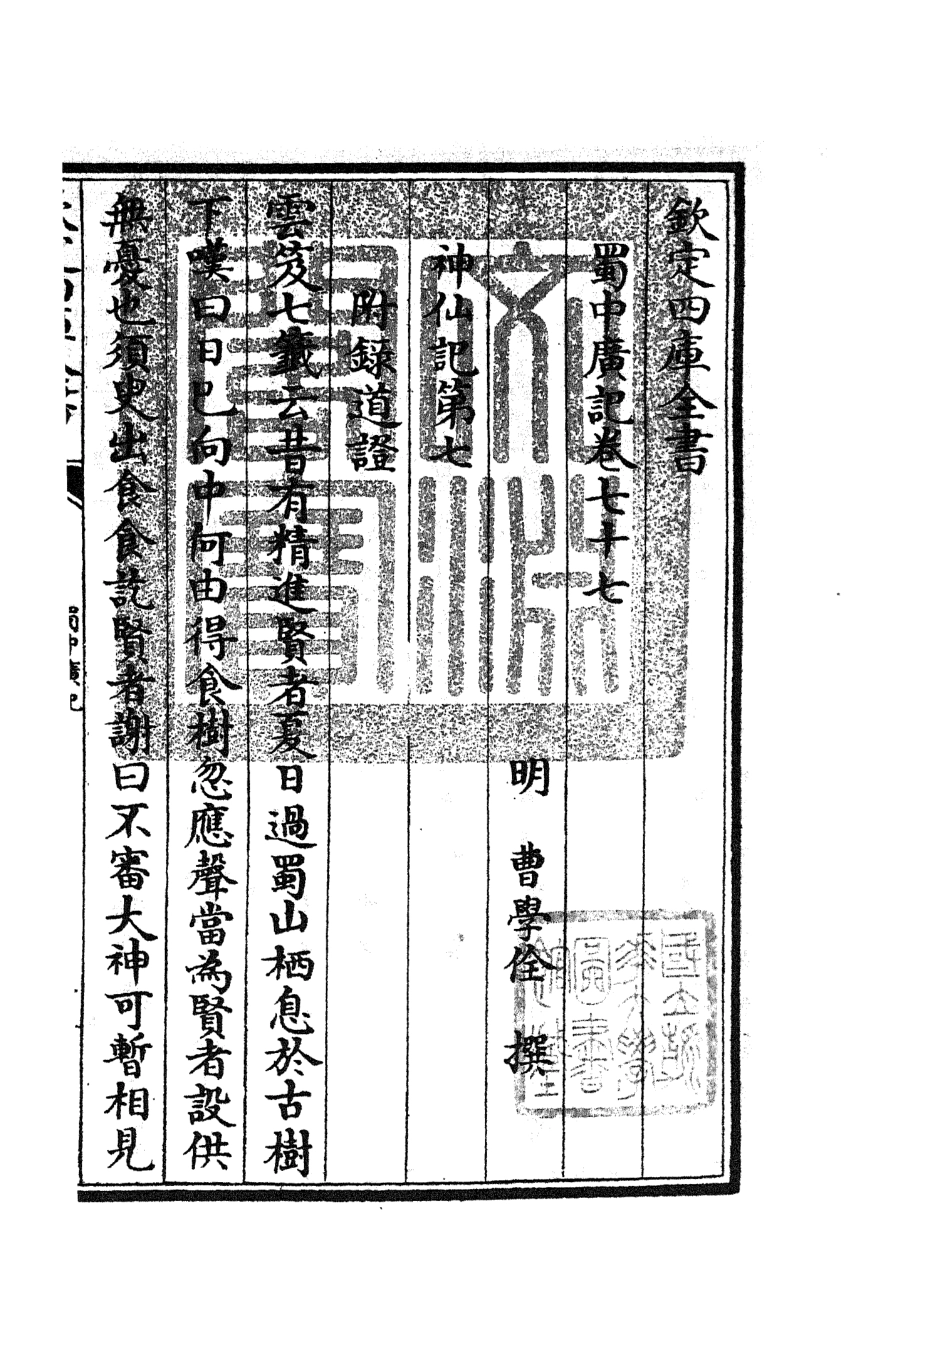 欽定四庫全書
蜀中廣記卷七十七
明 曹學佺 撰
神仙記第七
附錄道證
雲笈七籤云昔有精進賢者夏日過蜀山栖息於古樹
下嘆曰日已向中何由得食樹忽應聲當為賢者設供
無憂也須臾出食食訖賢者謝曰不審大神可暫相見
蜀中廣記
文淵閣寶